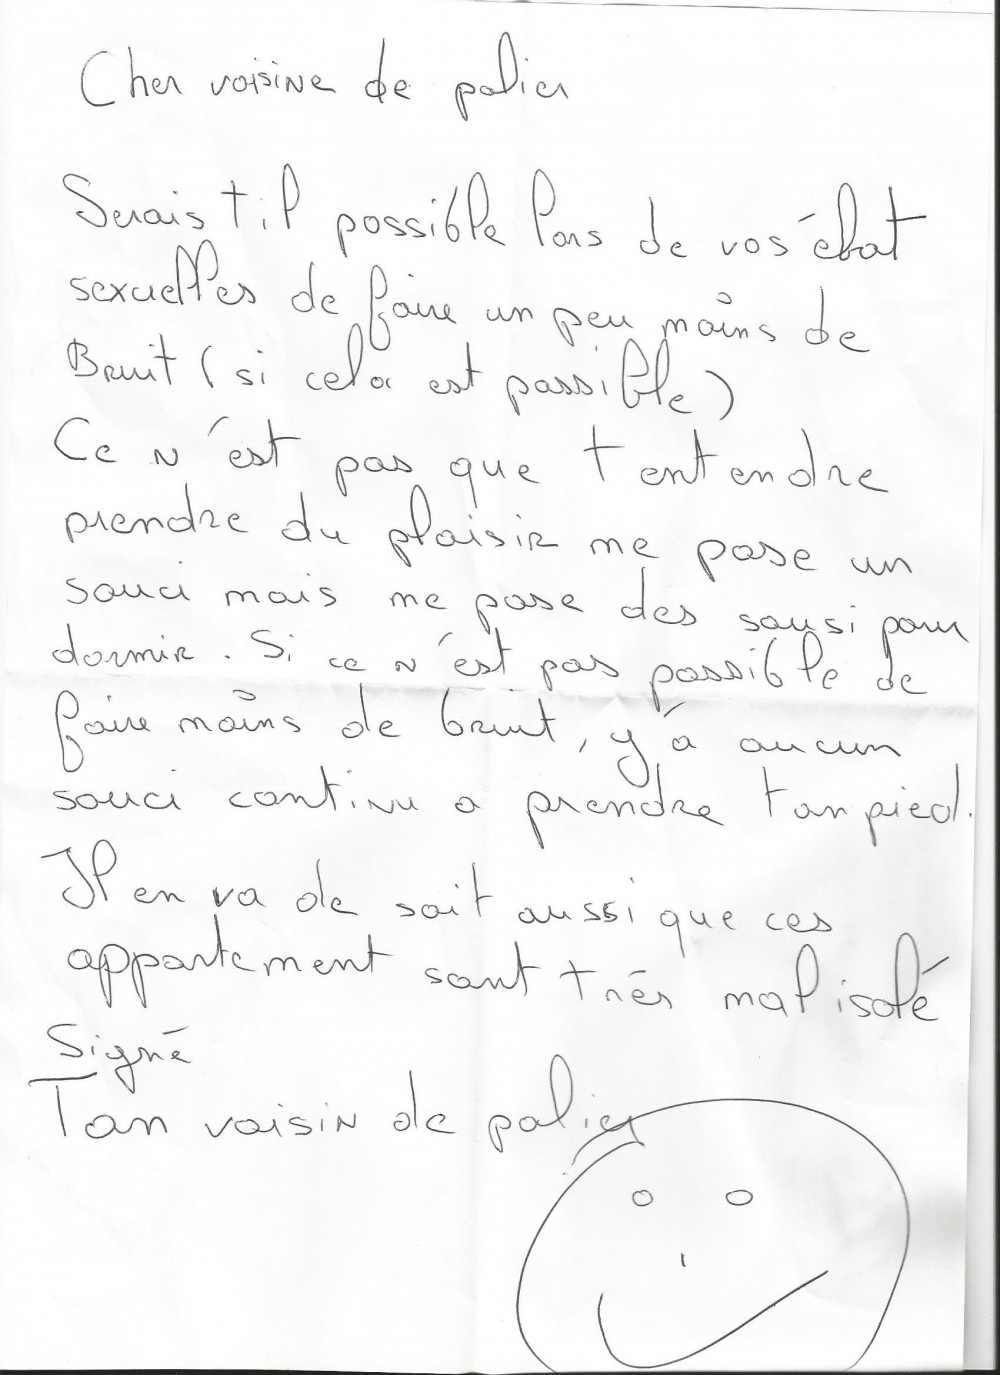 Cher voisine de palier
Serais t il possible lors de vos ébat
sexuelles de faire un peu moins de
Bruit (si cela est possible)
Ce n'est pas que t entendre
prendre du plaisir me pose un
souci mais me pose des sousi pour
dormir. Si ce n'est pas possible de
faire moins de bruit, y'a aucun
souci continu a prendre ton pied.
Il en va de soit aussi que ces
appartement sont très mal isolé
Signé
Ton voisin de palier